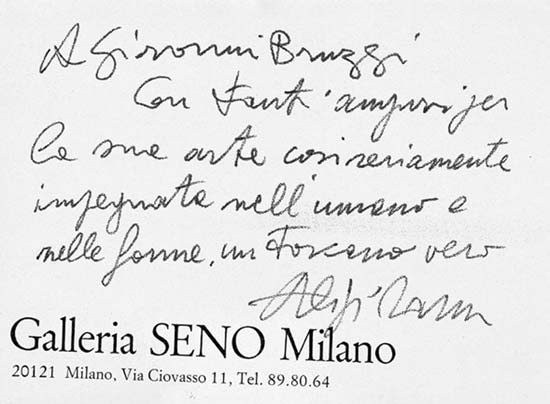 A Giovanni Bruzzi
Con tanti auguri per
la sua arte così seriamente
impegnata nell'umano e
nelle forme, un Toscano vero
Galleria SENO Milano
20121 Milano, Via Ciovasso 11, Tel. 89.80.64